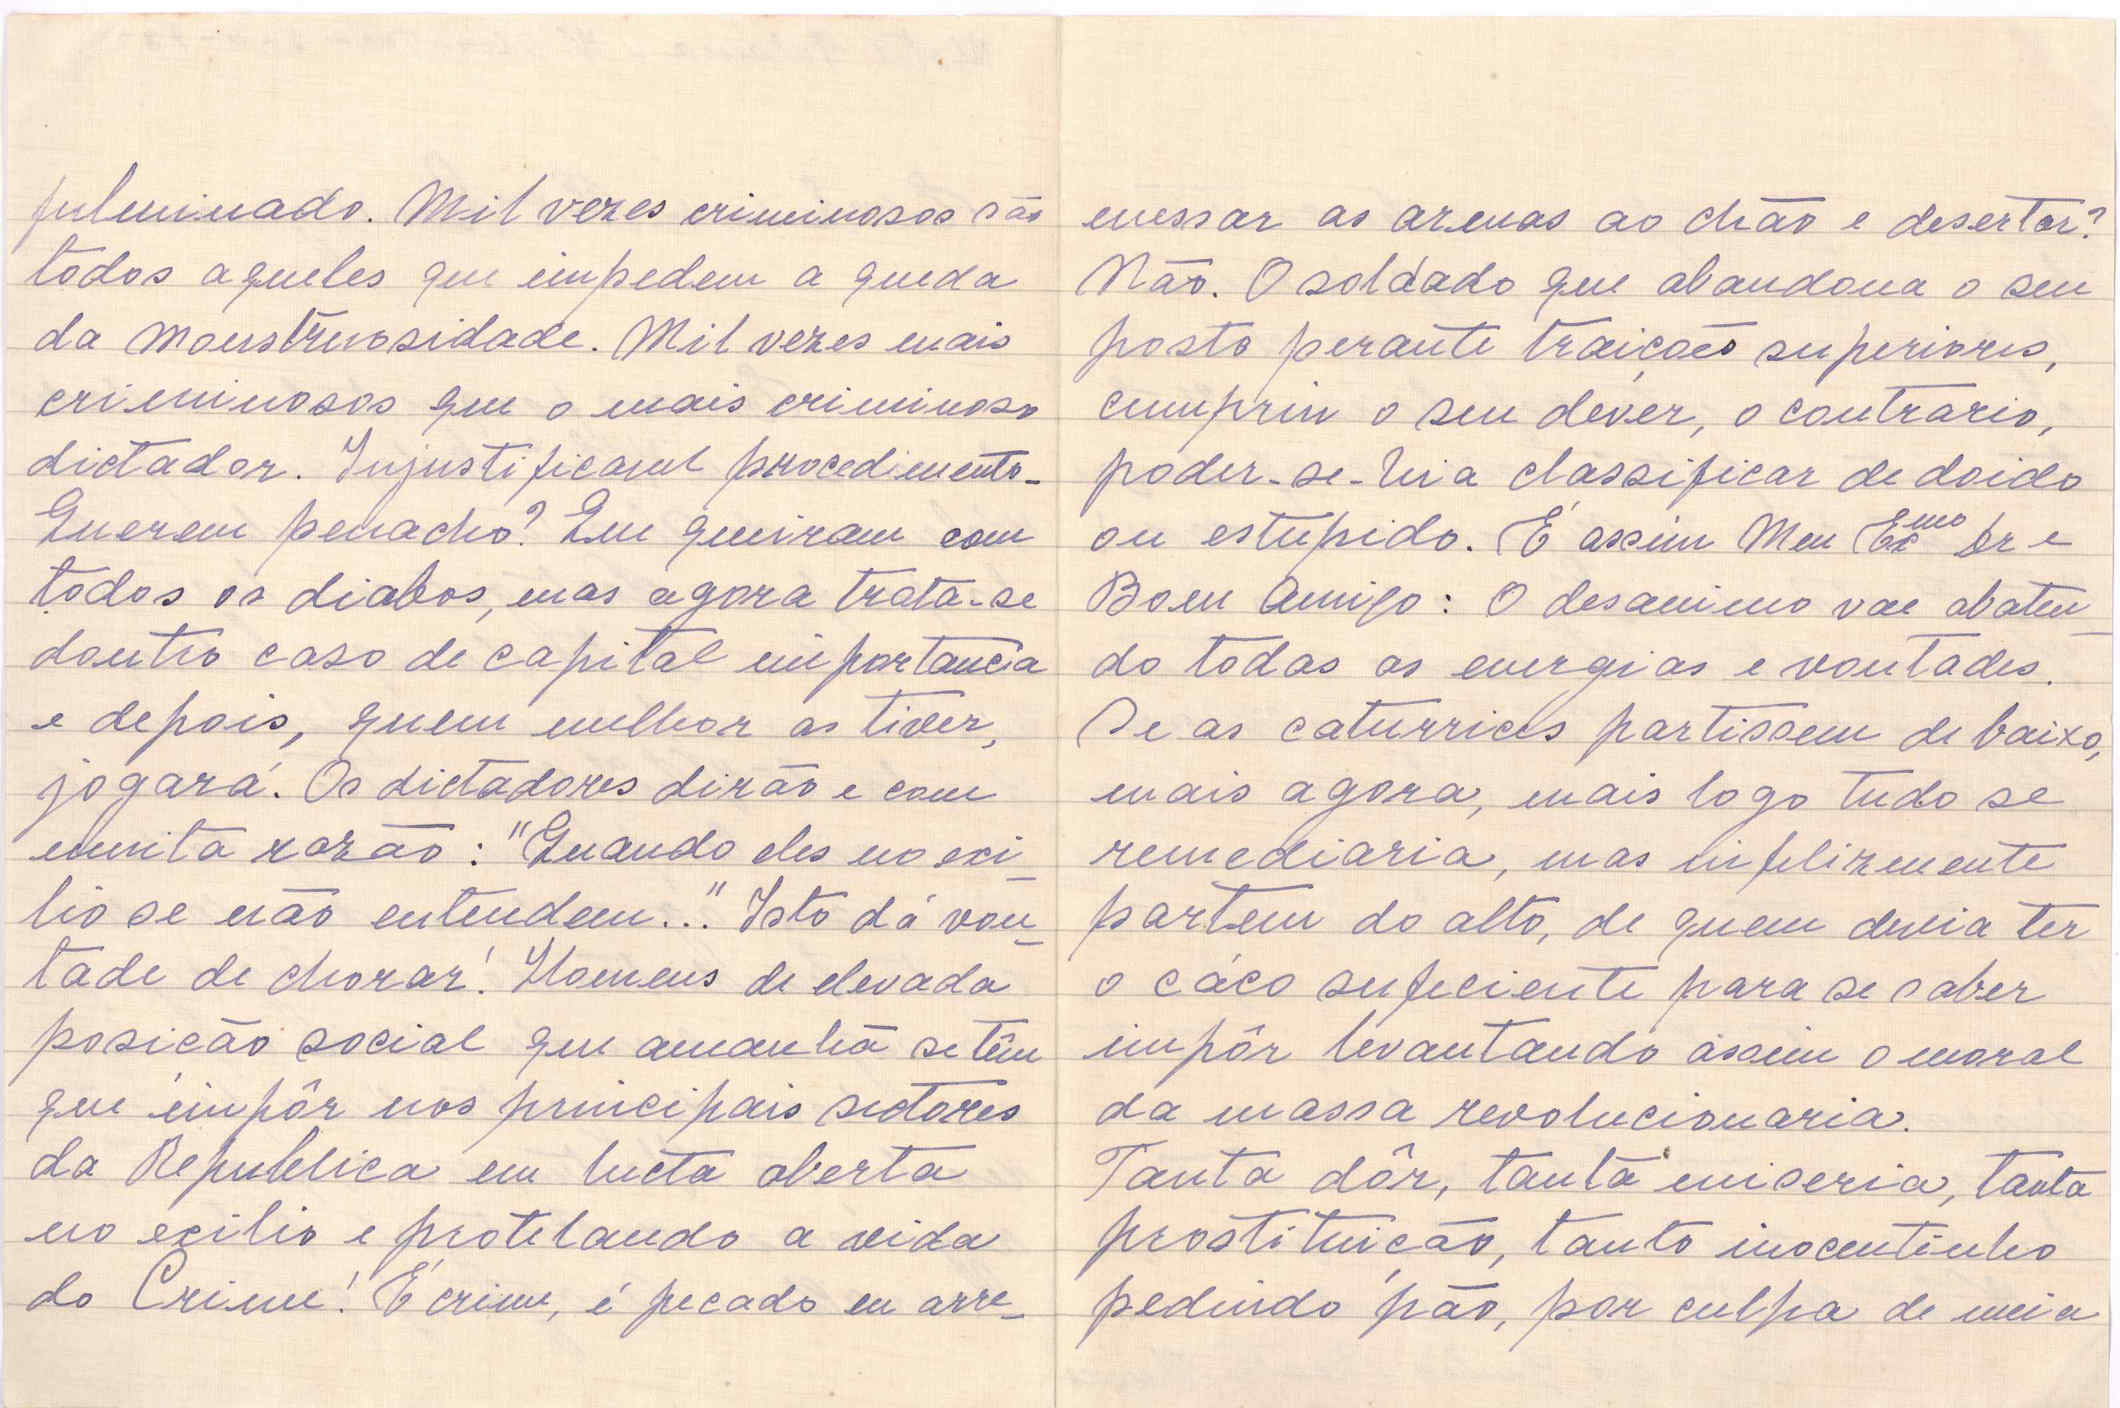 fulminado. Mil vezes criminosos são
todos aqueles que impedem a queda
da monstruosidade. Mil vezes mais
criminosos que o mais criminoso
dictador. Injustificavel procedimento.
Querem penacho? Que queiram com
todos os diabos, mas agora trata-se
doutro caso de capital importancia
e depois, quem melhor as tiver,
jogará. Os dictadores dirão e com
muita razão: "Quando eles no exi-
lio se não entendem..." Isto dá von-
tade de chorar! Homens de elevada
posição social que amanhã se têm
que impôr nos principais sectores
da Republica em lucta aberta
no exilio e protelando a vida
do Crime! É crime, é pecado eu arre-
messar as armas ao chão e desertar?
Não. O soldado que abandona o seu
posto perante traições superiores,
cumpriu o seu dever, o contrario,
poder-se-hia classificar de doido
ou estupido. É assim Meu Exmo Sr e
Bom Amigo: O desanimo vae abaten-
do todas as energias e vontades.
Se as caturrices partissem de baixo,
mais agora, mais logo tudo se
remediaria, mas infelizmente
partem do alto, de quem devia ter
o cáco suficiente para se saber
impôr levantando assim o moral
da massa revolucionaria.
Tanta dôr, tanta miseria, tanta
prostituição, tanto inocentinho
pedindo pão, por culpa de meia